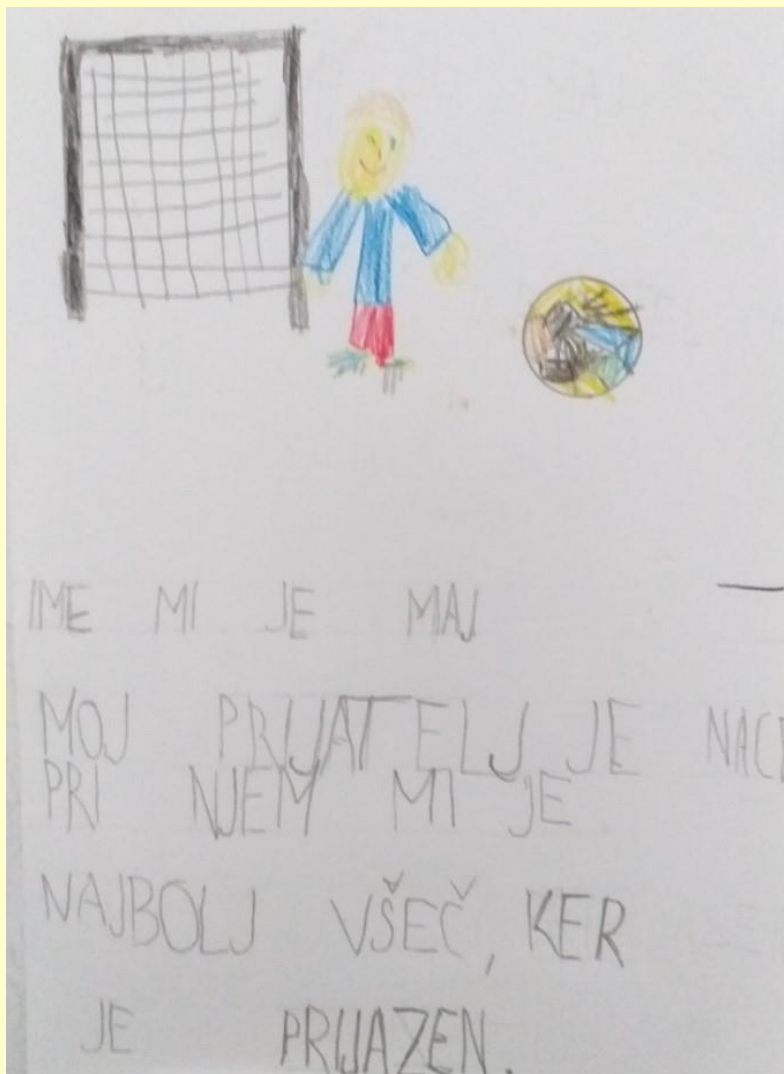 IME MI JE MAJ
MOJ PRIJATELJ JE
PRI NJEM MI JE
NAJBOLJ VŠEČ, KER
JE PRIJAZEN.